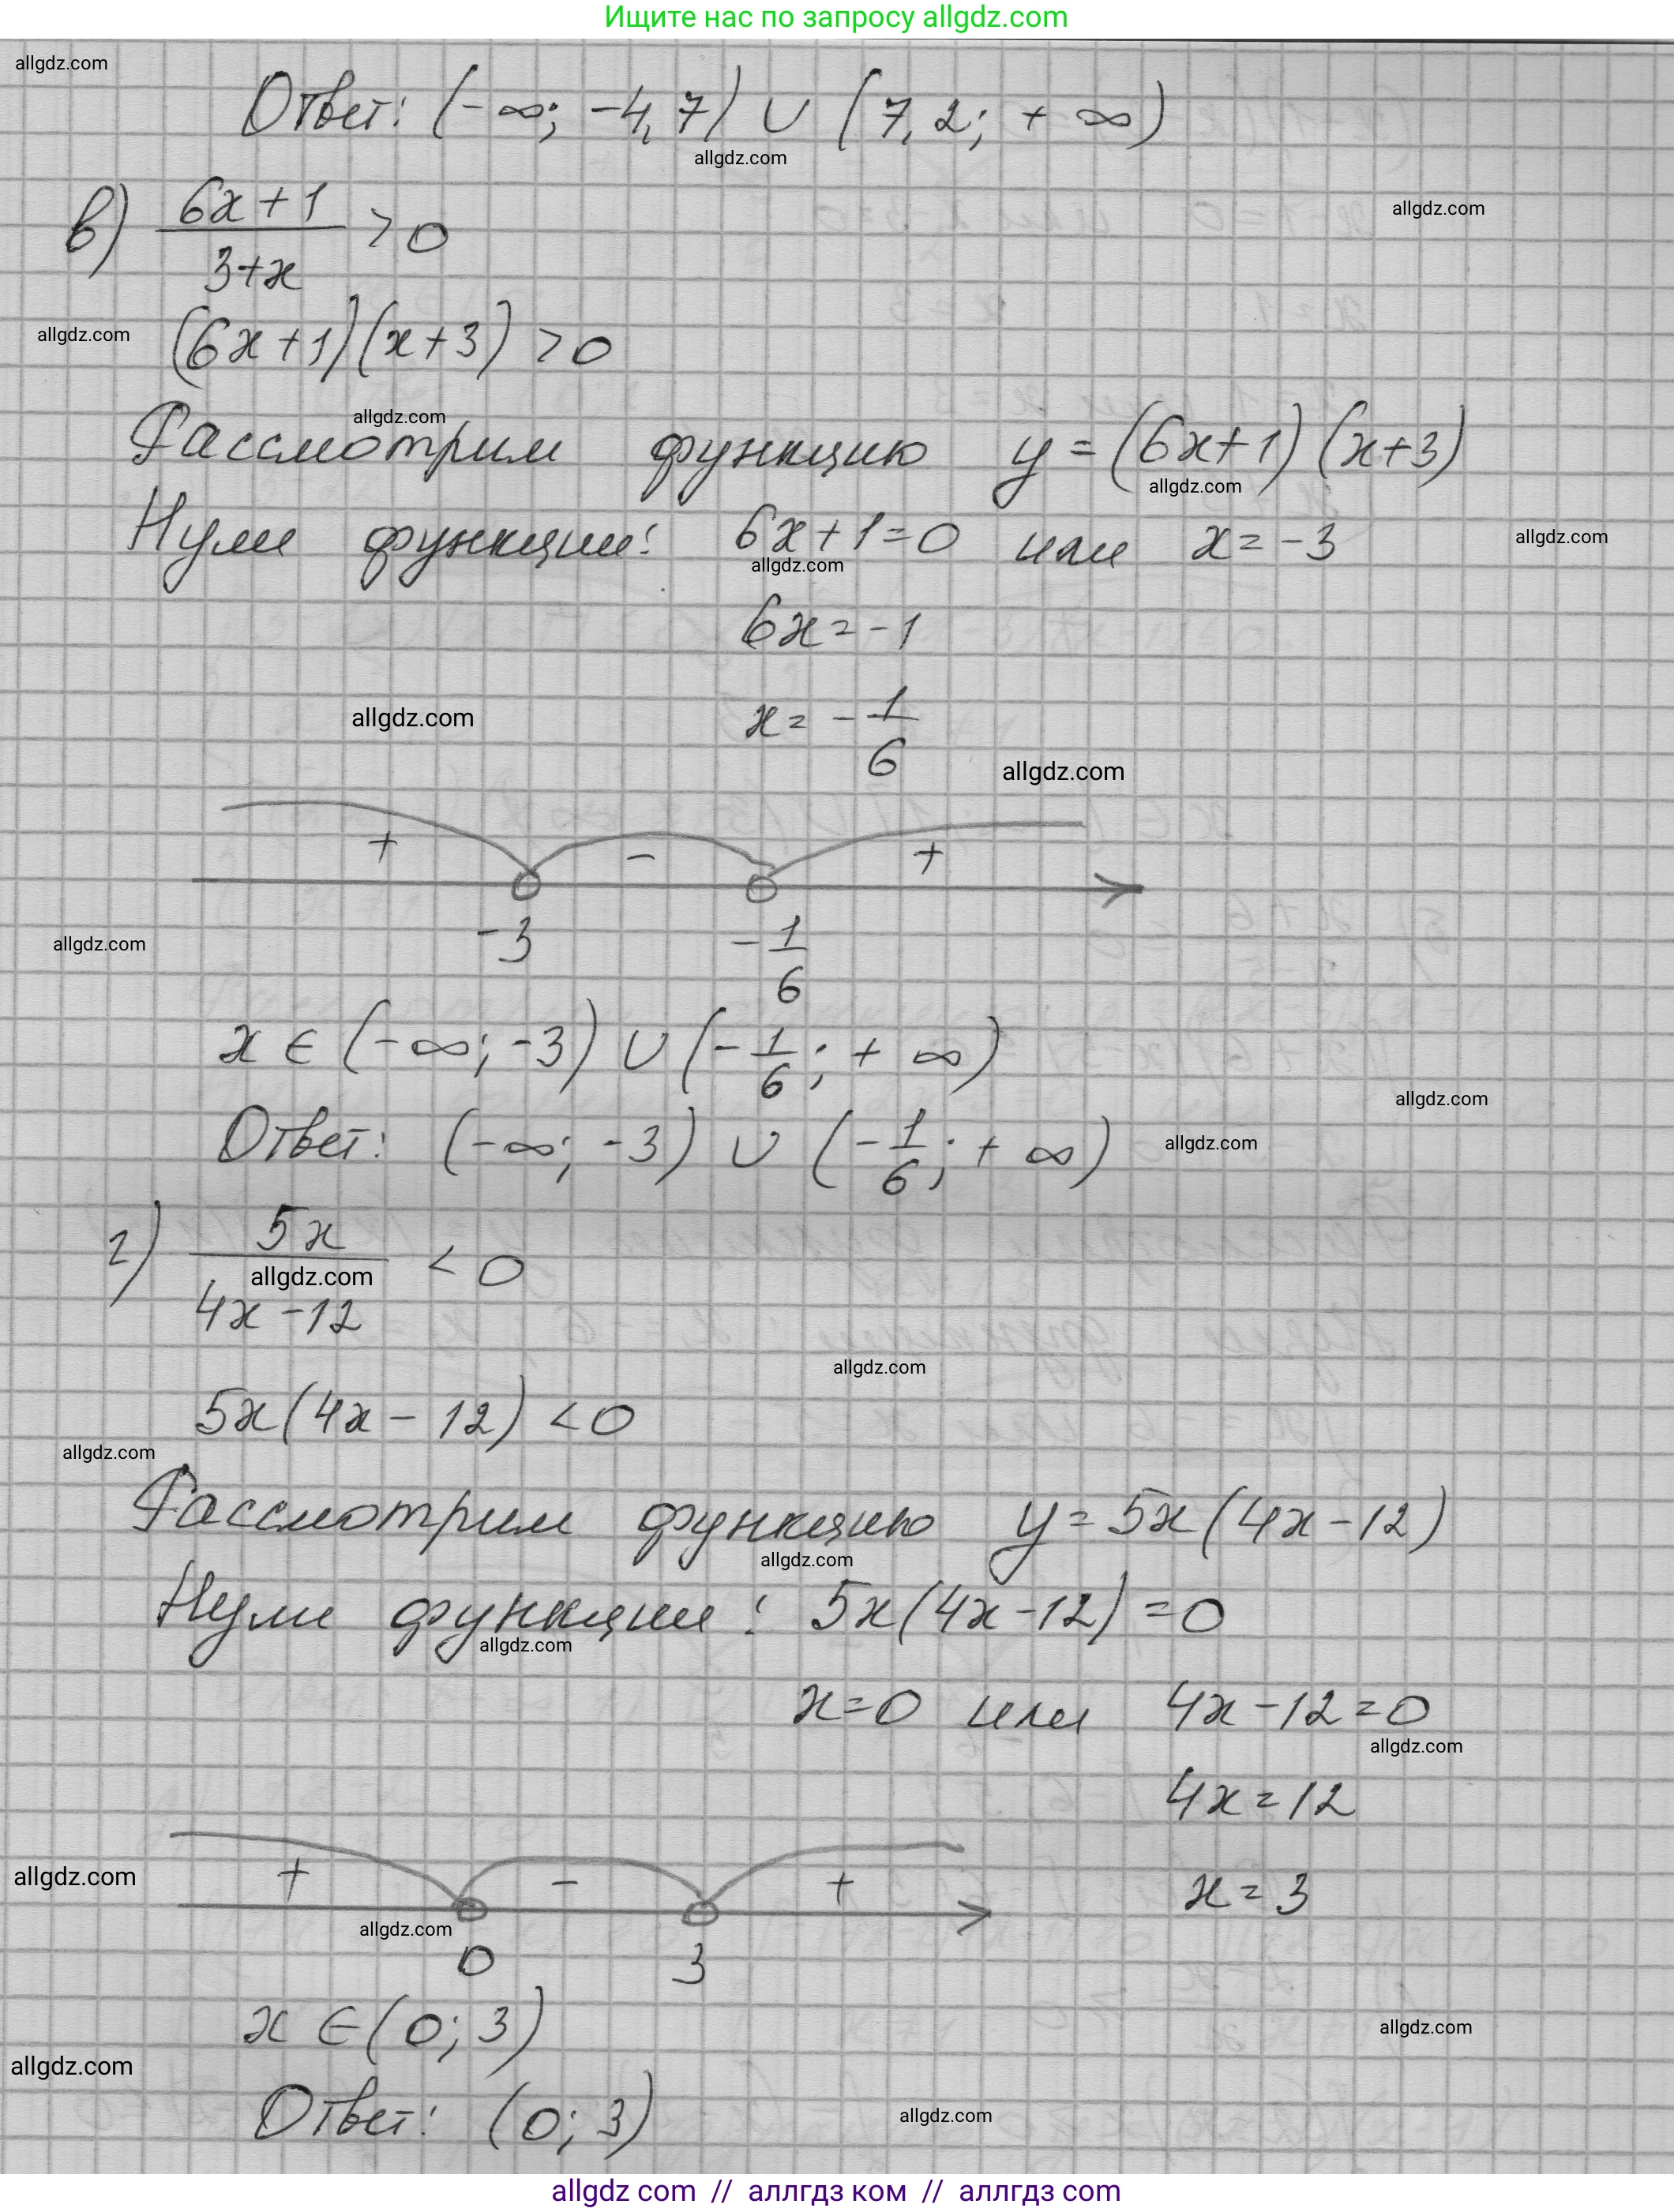 Ищите нас по запросу allgdz.com
allgdz.com
Ответ: (-∞; -4,7) ∪ (7,2; +∞)
allgdz.com
в) (6x+1)/(3+x) > 0
allgdz.com
allgdz.com
(6x+1)(x+3) > 0
allgdz.com
Рассмотрим функцию y=(6x+1)(x+3)
allgdz.com
Нули функции: 6x+1=0 или x=-3
allgdz.com
allgdz.com
6x=-1
allgdz.com
x= -1/6
allgdz.com
+ - +
-3 -1/6
allgdz.com
x ∈ (-∞; -3) ∪ (-1/6; +∞)
allgdz.com
Ответ: (-∞; -3) ∪ (-1/6; +∞)
allgdz.com
г) 5x/(4x-12) < 0
allgdz.com
allgdz.com
5x(4x-12) < 0
allgdz.com
Рассмотрим функцию y=5x(4x-12)
allgdz.com
Нули функции: 5x(4x-12)=0
allgdz.com
x=0 или 4x-12=0
allgdz.com
4x=12
allgdz.com
+ - +
x=3
allgdz.com
0 3
x ∈ (0; 3)
allgdz.com
allgdz.com
Ответ: (0; 3)
allgdz.com
allgdz com // аллгдз ком // аллгдз com